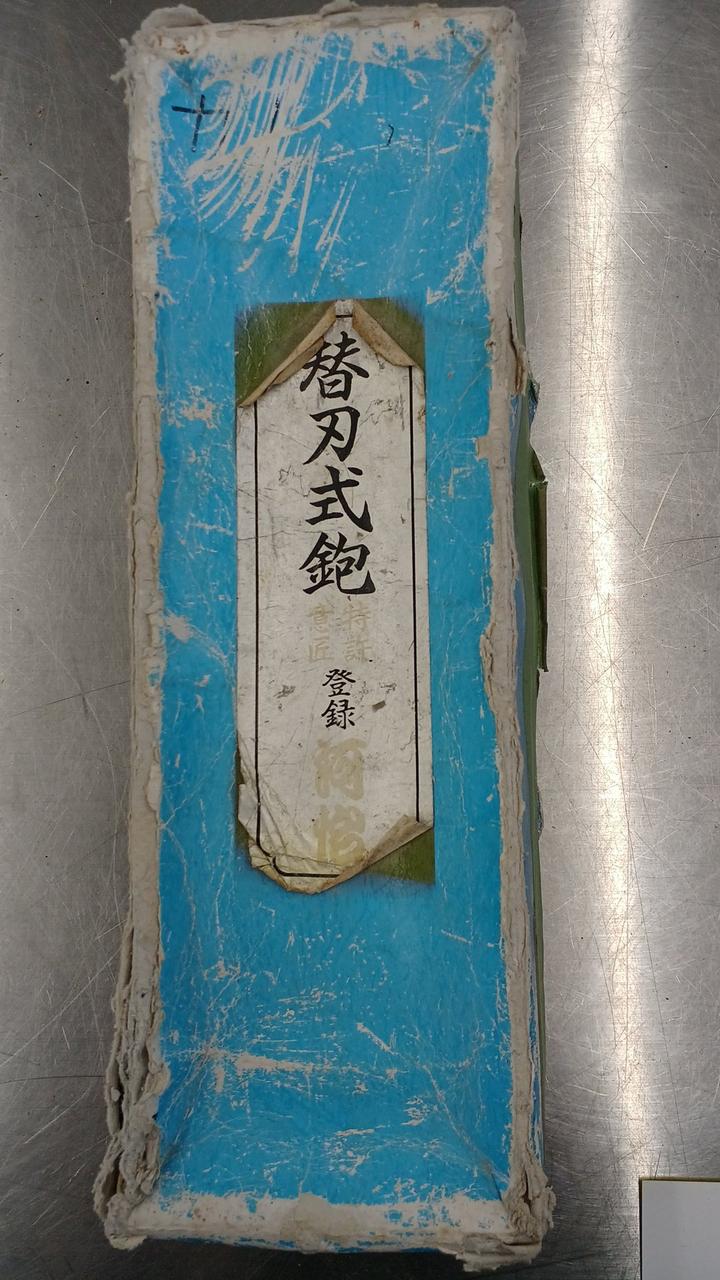 替刃式鉋
特許
意匠
登録